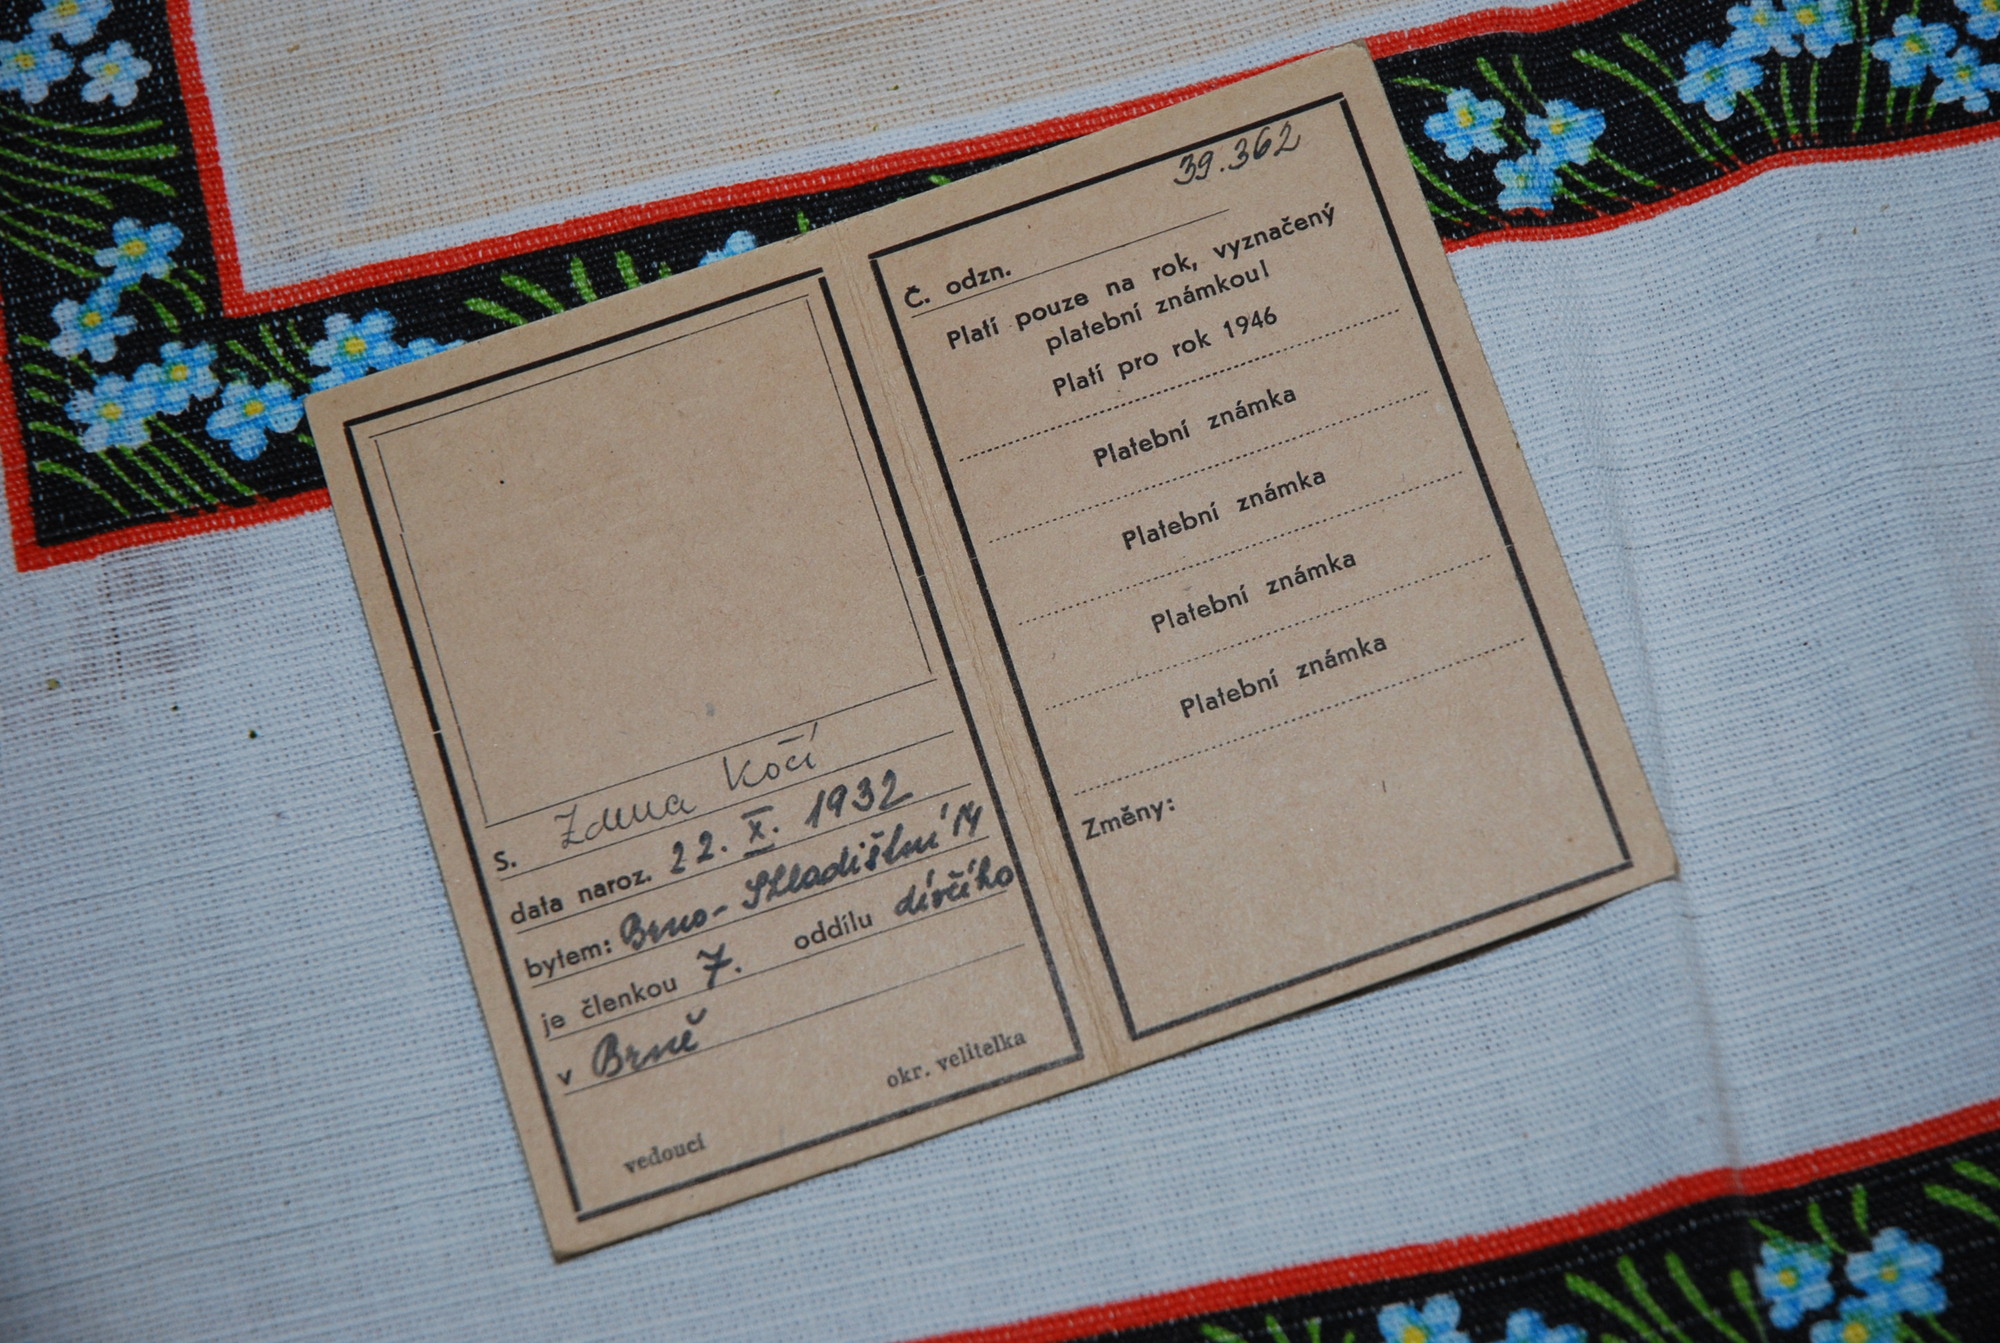 S. Zdena Kočí
data naroz. 22. X. 1932
bytem: Brno-Skladištní 14
je členkou 7. oddílu dívčího
v Brně
okr. velitelka
vedoucí
39.362
Č. odzn.
Platí pouze na rok, vyznačený
platební známkou!
Platí pro rok 1946
Platební známka
Platební známka
Platební známka
Platební známka
Změny: